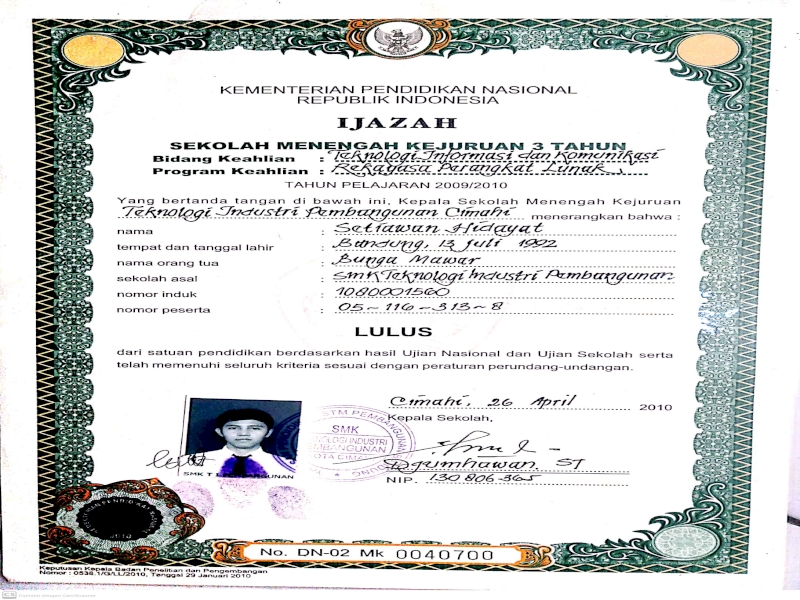 KEMENTERIAN PENDIDIKAN NASIONAL
REPUBLIK INDONESIA
IJAZAH
SEKOLAH MENENGAH KEJURUAN 3 TAHUN
Bidang Keahlian : Teknologi Informasi dan Komunikasi
Program Keahlian : Rekayasa Perangkat Lunak
TAHUN PELAJARAN 2009/2010
Yang bertanda tangan di bawah ini, Kepala Sekolah Menengah Kejuruan
Teknologi Industri Pembangunan Cimahi menerangkan bahwa :
nama : Setiawan Hidayat
tempat dan tanggal lahir : Bandung, 13 Juli 1992
nama orang tua : Bunga Mawar
sekolah asal : SMK Teknologi Industri Pembangunan
nomor induk : 1080001560
nomor peserta : 05-116-313-8
LULUS
dari satuan pendidikan berdasarkan hasil Ujian Nasional dan Ujian Sekolah serta
telah memenuhi seluruh kriteria sesuai dengan peraturan perundang-undangan.
Cimahi, 26 April 2010
Kepala Sekolah,
SMK
Djumhawan, ST
NIP. 130806365
No. DN-02 Mk 0040700
Keputusan Kepala Badan Penelitian dan Pengembangan
Nomor : 0538.1/G/LL/2010, Tanggal 29 Januari 2010